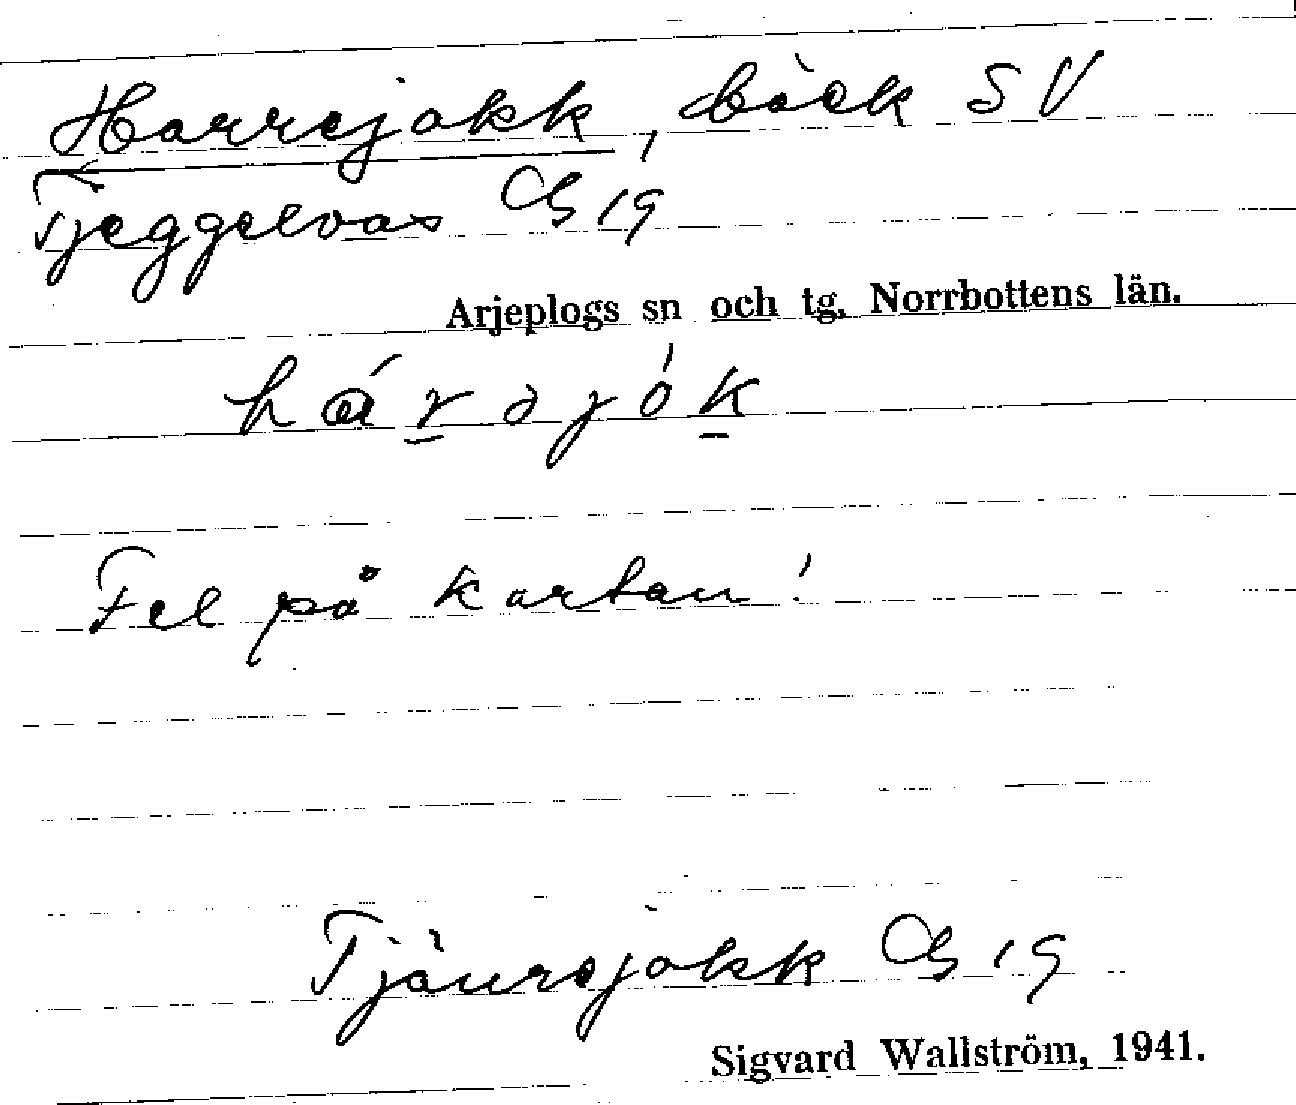 Harrejokk, bäck SV
Tjeggelvas Gb 19
Arjeplogs sn och tg, Norrbottens län.
hárəjók
Fel på kartan!
Tjäurejokk Gb 19
Sigvard Wallström, 1941.